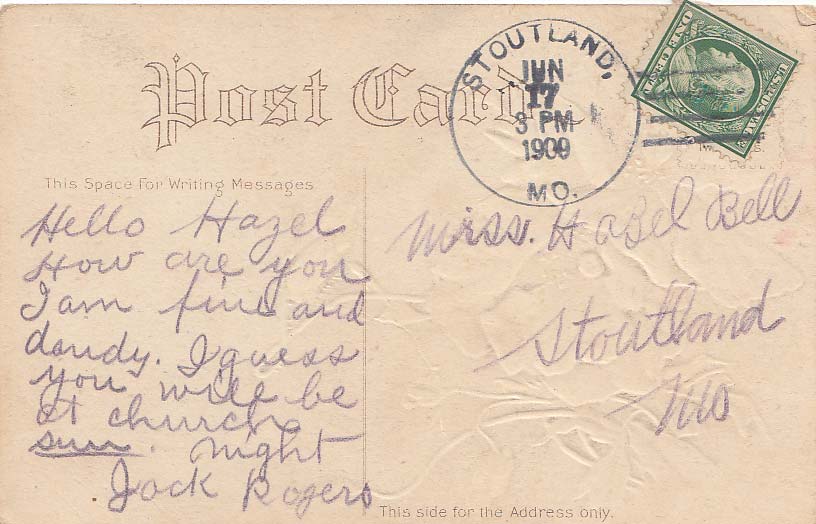 Post Card
STOUTLAND,
JUN
17
3 PM
1909
MO.
This Space For Writing Messages
Hello Hazel
How are you
I am fine and
dandy. I guess
you will be
at church
sun. night
Jack Rogers
Miss. Hazel Bell
Stoutland
Mo
This side for the Address only.